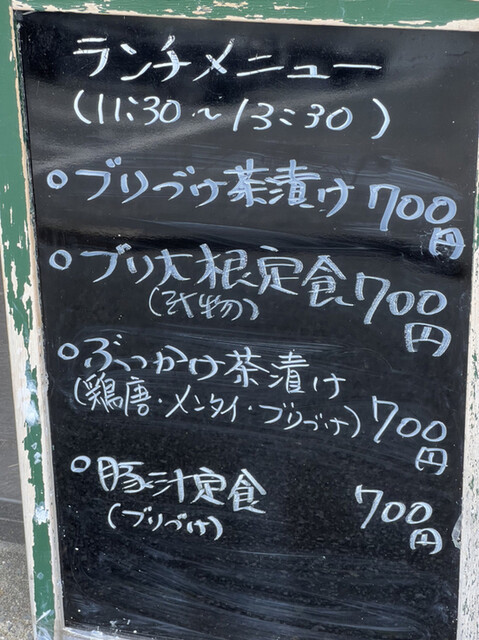 ランチメニュー
(11:30~13:30)
○ブリづけ茶漬け 700円
○ブリ大根定食 700円
(煮物)
○ぶっかけ茶漬け
(鶏唐・メンタイ・ブリづけ) 700円
○豚汁定食 700円
(ブリづけ)